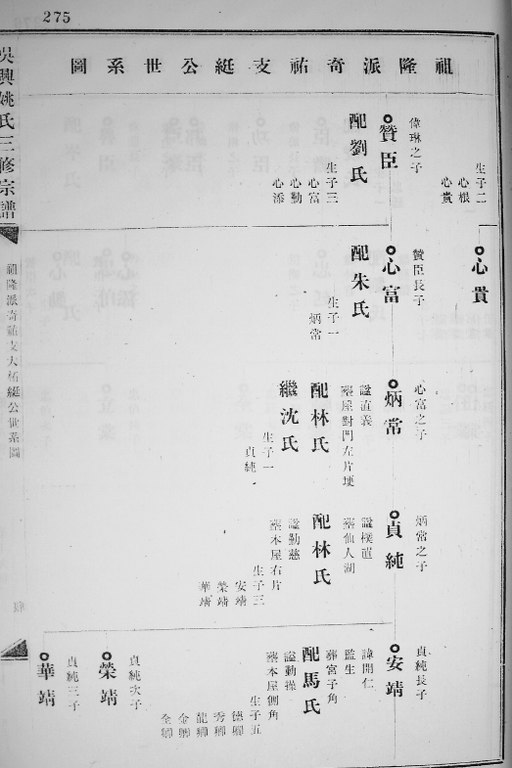 275
祖隆派奇祐支娗公世系圖
吳興姚氏三修宗譜
生子二
心根
心貴
偉琳之子
贊臣
配劉氏
生子三
心富
心勤
心添
心貴
贊臣長子
心富
配朱氏
生子一
炳常
心富之子
炳常
諡直義
葬屋對門左片埂
配林氏
繼沈氏
生子一
貞純
炳常之子
貞純
諡樸直
葬仙人湖
配林氏
諡勤慈
葬本屋右片
生子三
安靖
榮靖
華靖
貞純長子
安靖
諱開仁
監生
葬宮子角
配馬氏
諡勤操
葬本屋側角
生子五
德卿
秀卿
龍卿
金卿
全卿
貞純次子
榮靖
貞純三子
華靖